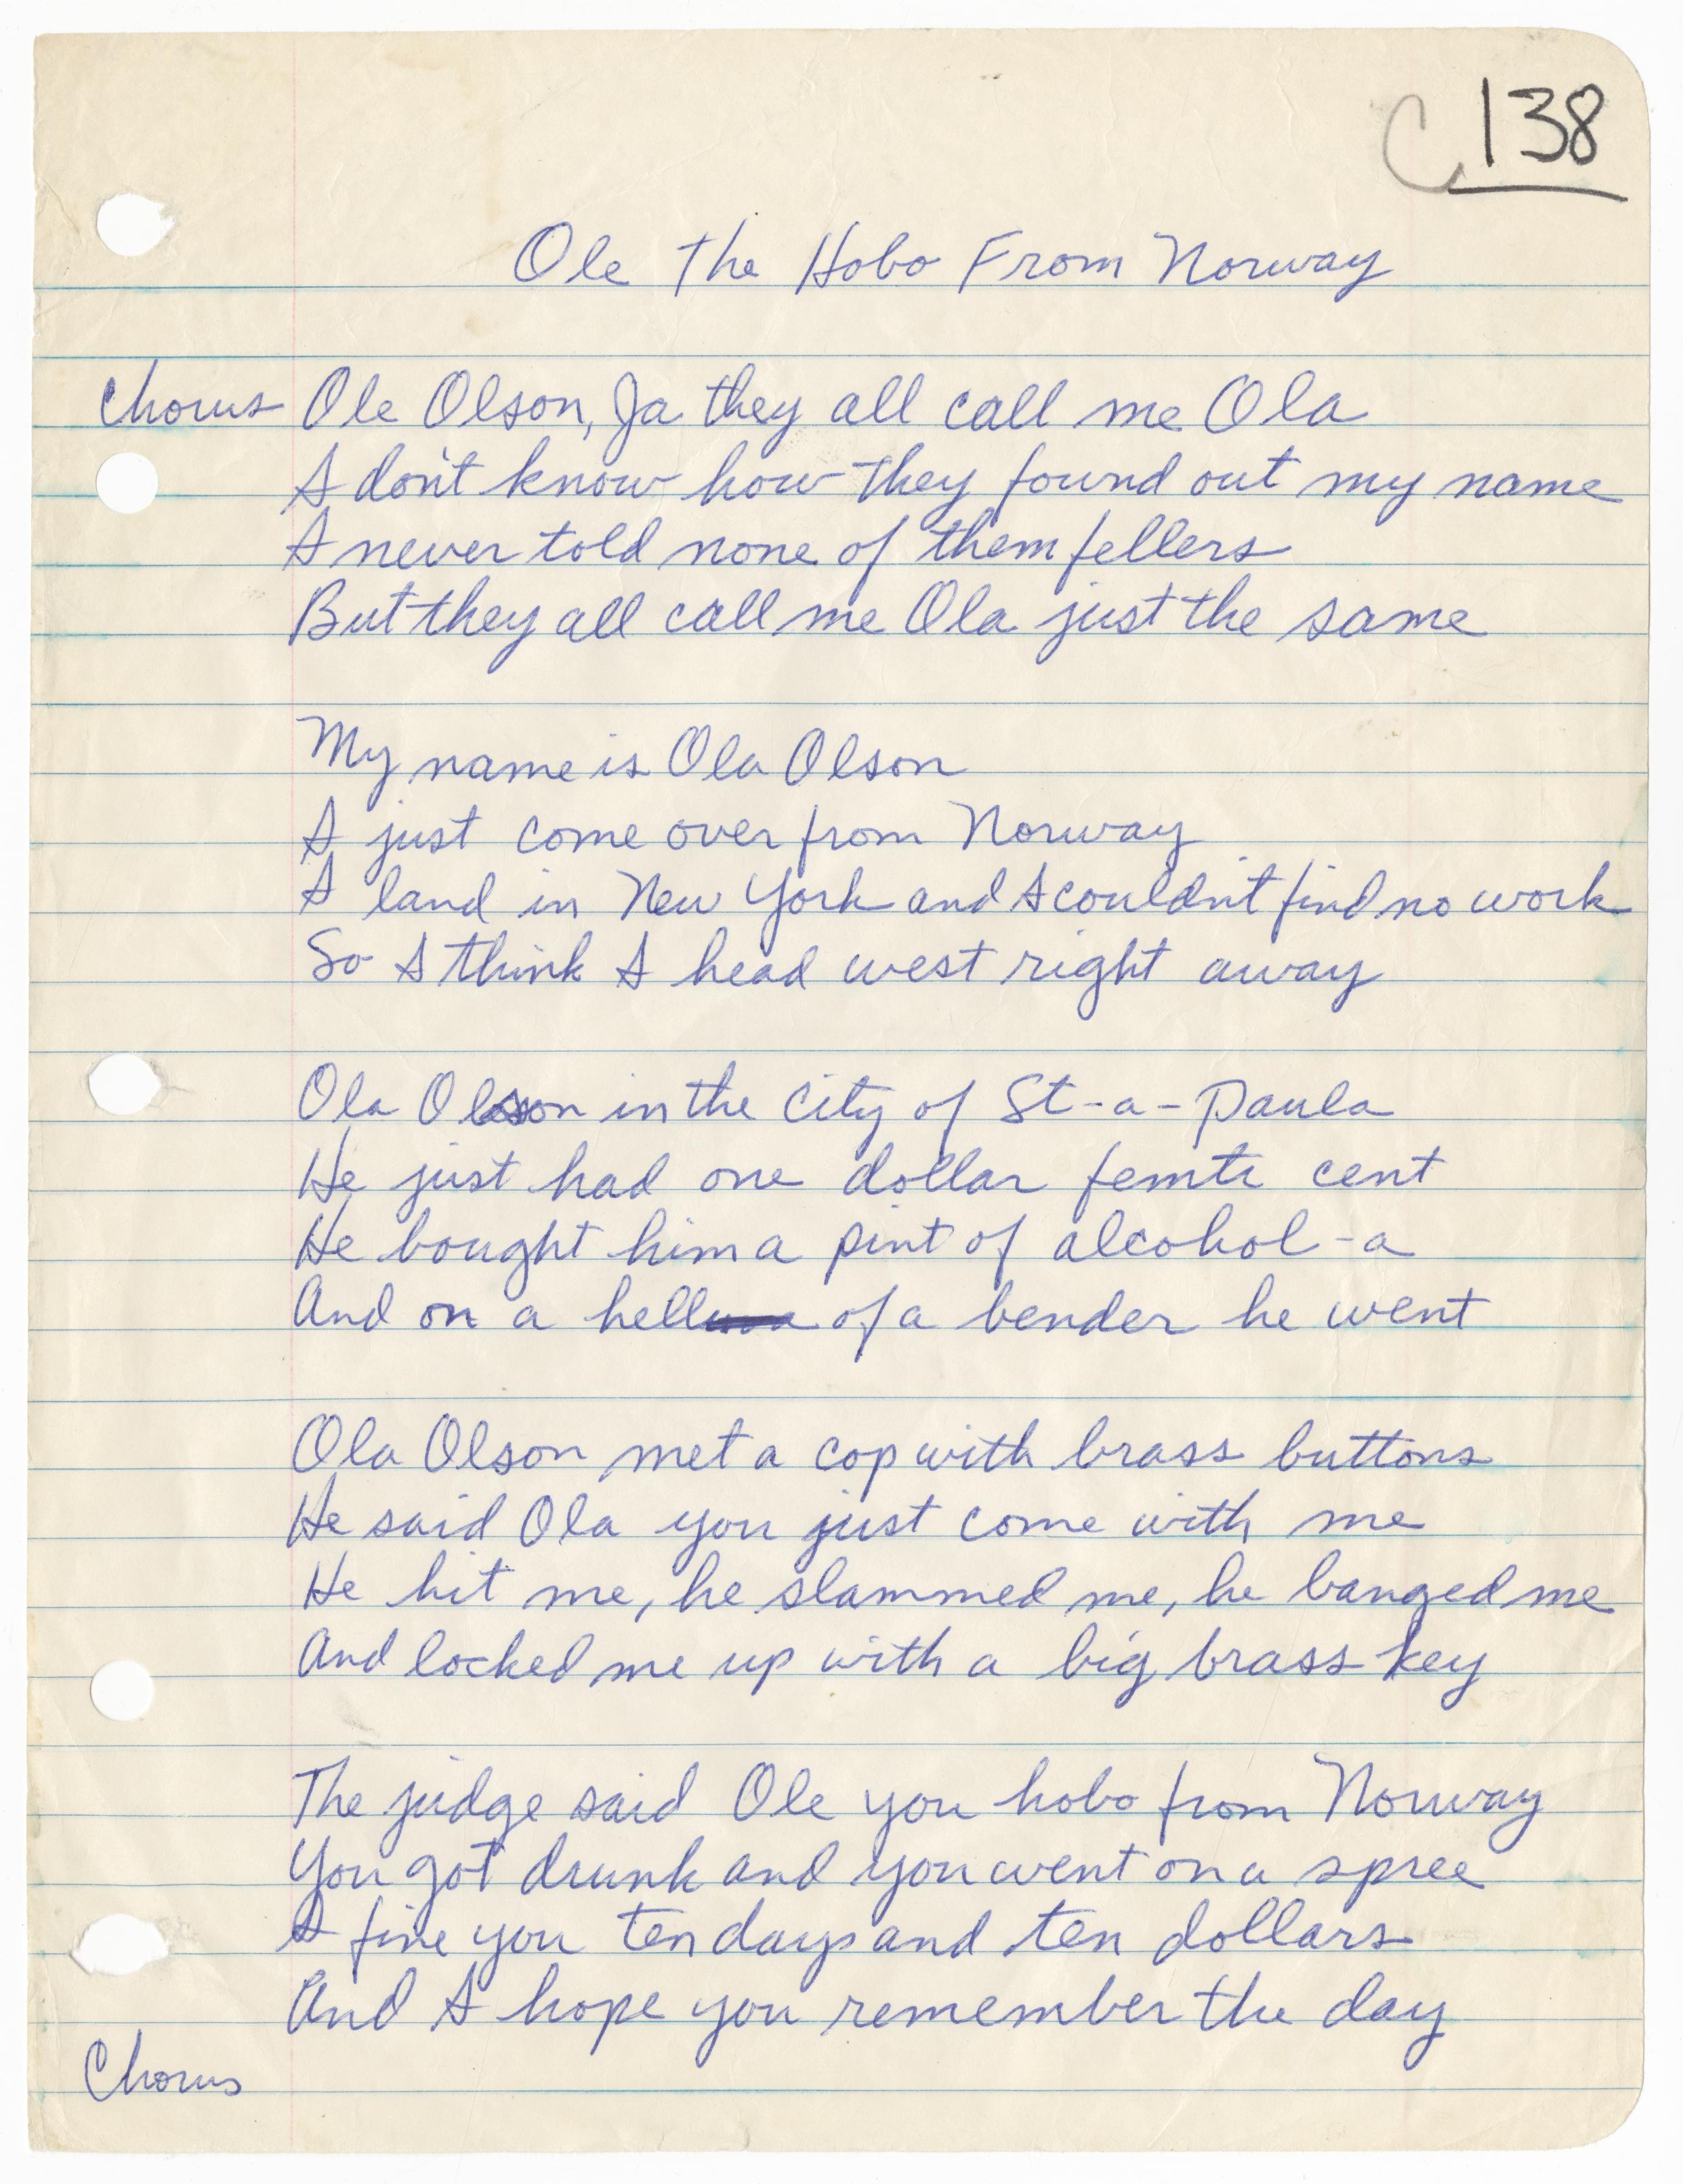 C 138
Ole The Hobo From Norway
Chorus Ole Olson, Ja they all call me Ola
I don't know how they found out my name
I never told none of them fellers
But they all call me Ola just the same
My name is Ola Olson
I just come over from Norway
I land in New York and I couldn't find no work
So I think I head west right away
Ola Olson in the city of St-a-Paula
He just had one dollar femti cent
He bought him a pint of alcohol-a
And on a hell of a bender he went
Ola Olson met a cop with brass buttons
He said Ola you just come with me
He hit me, he slammed me, he banged me
And locked me up with a big brass key
The judge said Ole you hobo from Norway
You got drunk and you went on a spree
I fine you ten days and ten dollars
And I hope you remember the day
Chorus